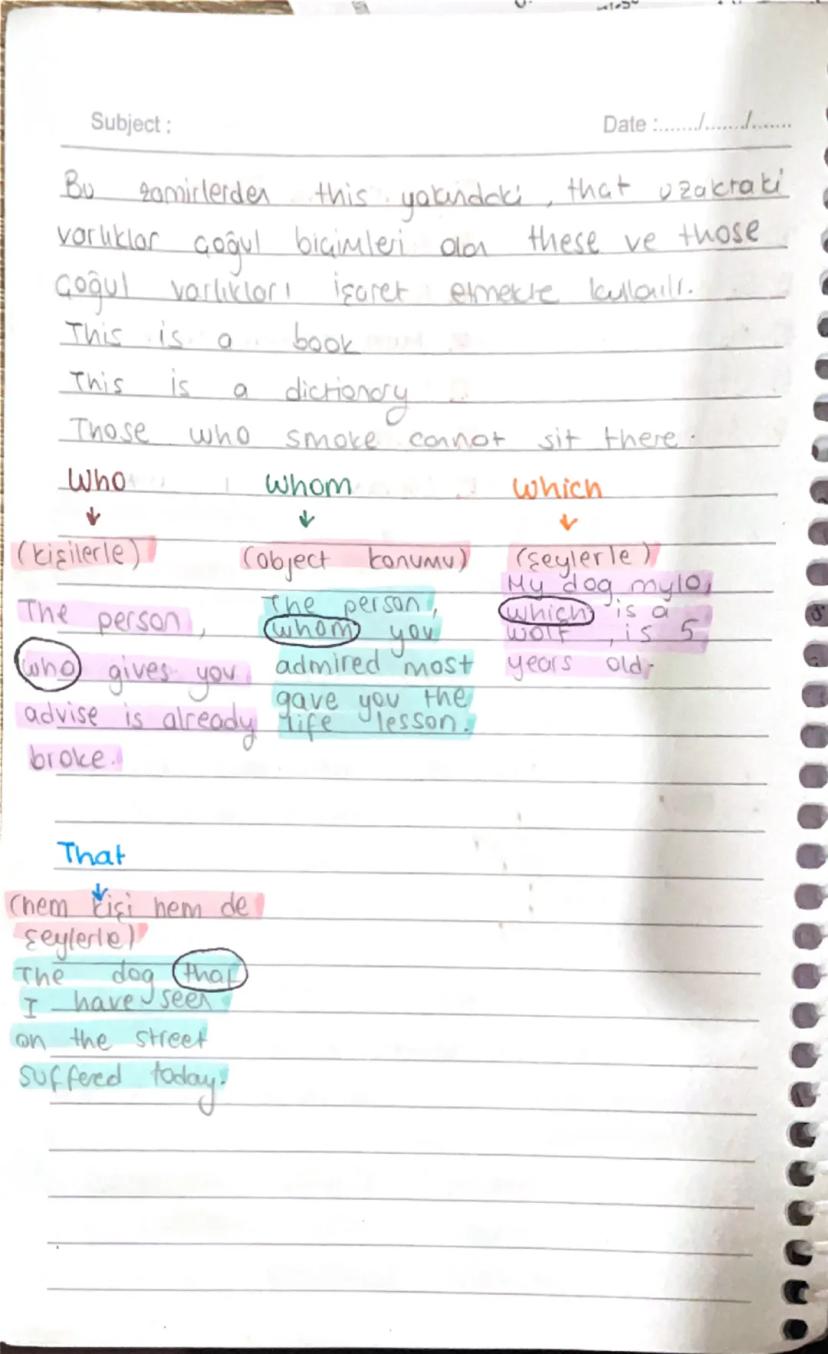 Subject :
Date :....../......./.......
Bu zamirlerden this yakındaki , that uzaktaki
varlıklar çoğul biçimleri olan these ve those
çoğul varlıkları işaret etmekte kullanılır.
This is a book
This is a dictionary
Those who smoke cannot sit there.
Who
(kişilerle)
The person ,
who gives you
advise is already
broke.
Whom
(object konumu)
The person,
whom you
admired most
gave you the
life lesson.
Which
(şeylerle)
My dog mylo,
which is a
wolf , is 5
years old.
That
(hem kişi hem de
şeylerle)
The dog that
I have seen
on the street
suffered today.